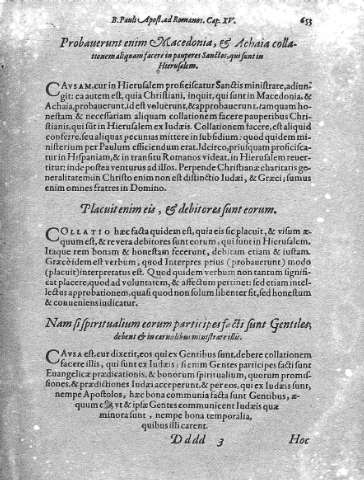 B. Pauli Apost. ad Romanos. Cap. XV. 653
Probauerunt enim Macedonia, & Achaia colla-
tionem aliquam facere in pauperes Sanctos, qui sunt in
Hierusalem.
CAVSAM, cur in Hierusalem proficiscatur Sanctis ministrare, adiun-
git: ea autem est, quia Christiani, inquit, qui sunt in Macedonia, &
Achaia, probauerunt, id est voluerunt, & approbauerunt, tamquam ho-
nestam & necessariam aliquam collationem facere pauperibus Chri-
stianis, qui sint in Hierusalem ex Iudæis. Collationem facere, est aliquid
conferre, seu aliquas pecunias mittere in subsidium: quod quidem mi-
nisterium per Paulum efficiendum erat. Idcirco, priusquam proficisca-
tur in Hispaniam, & in transitu Romanos videat, in Hierusalem reuer-
titur; inde postea venturus ad illos. Perpende Christianæ charitatis ge-
neralitatem: in Christo enim non est distinctio Iudæi, & Græci, sumus
enim omnes fratres in Domino.
Placuit enim eis, & debitores sunt eorum.
COLLATIO hæc facta quidem est, quia eis sic placuit, & visum æ-
quum est, & re vera debitores sunt eorum, qui sunt in Hierusalem.
Itaque rem bonam & honestam fecerunt, debitam etiam & iustam.
Græcè idem est verbum, quod Interpres prius (probauerunt) modò
(placuit) interpretatus est. Quod quidem verbum non tantum signifi-
cat placere, quod ad voluntatem, & affectum pertinet: sed etiam intel-
lectus approbationem, quasi quod non solùm libenter fit, sed honestum
& conueniens iudicatur.
Nam si spiritualium eorum participes facti sunt Gentiles,
debent & in carnalibus ministrare illis.
CAVSA est, cur dixerit, eos qui ex Gentibus sunt, debere collationem
facere illis, qui sunt ex Iudæis: si enim Gentes participes facti sunt
Euangelicæ prædicationis, & bonorum spiritualium, quorum promis-
siones, & prædictiones Iudæi acceperunt, & per eos, qui ex Iudæis sunt,
nempe Apostolos, hæc bona communia facta sunt Gentibus, æ-
quum est vt & ipsæ Gentes communicent Iudæis quæ
minora sunt, nempe bona temporalia,
quibus illi carent.
Dddd 3 Hoc